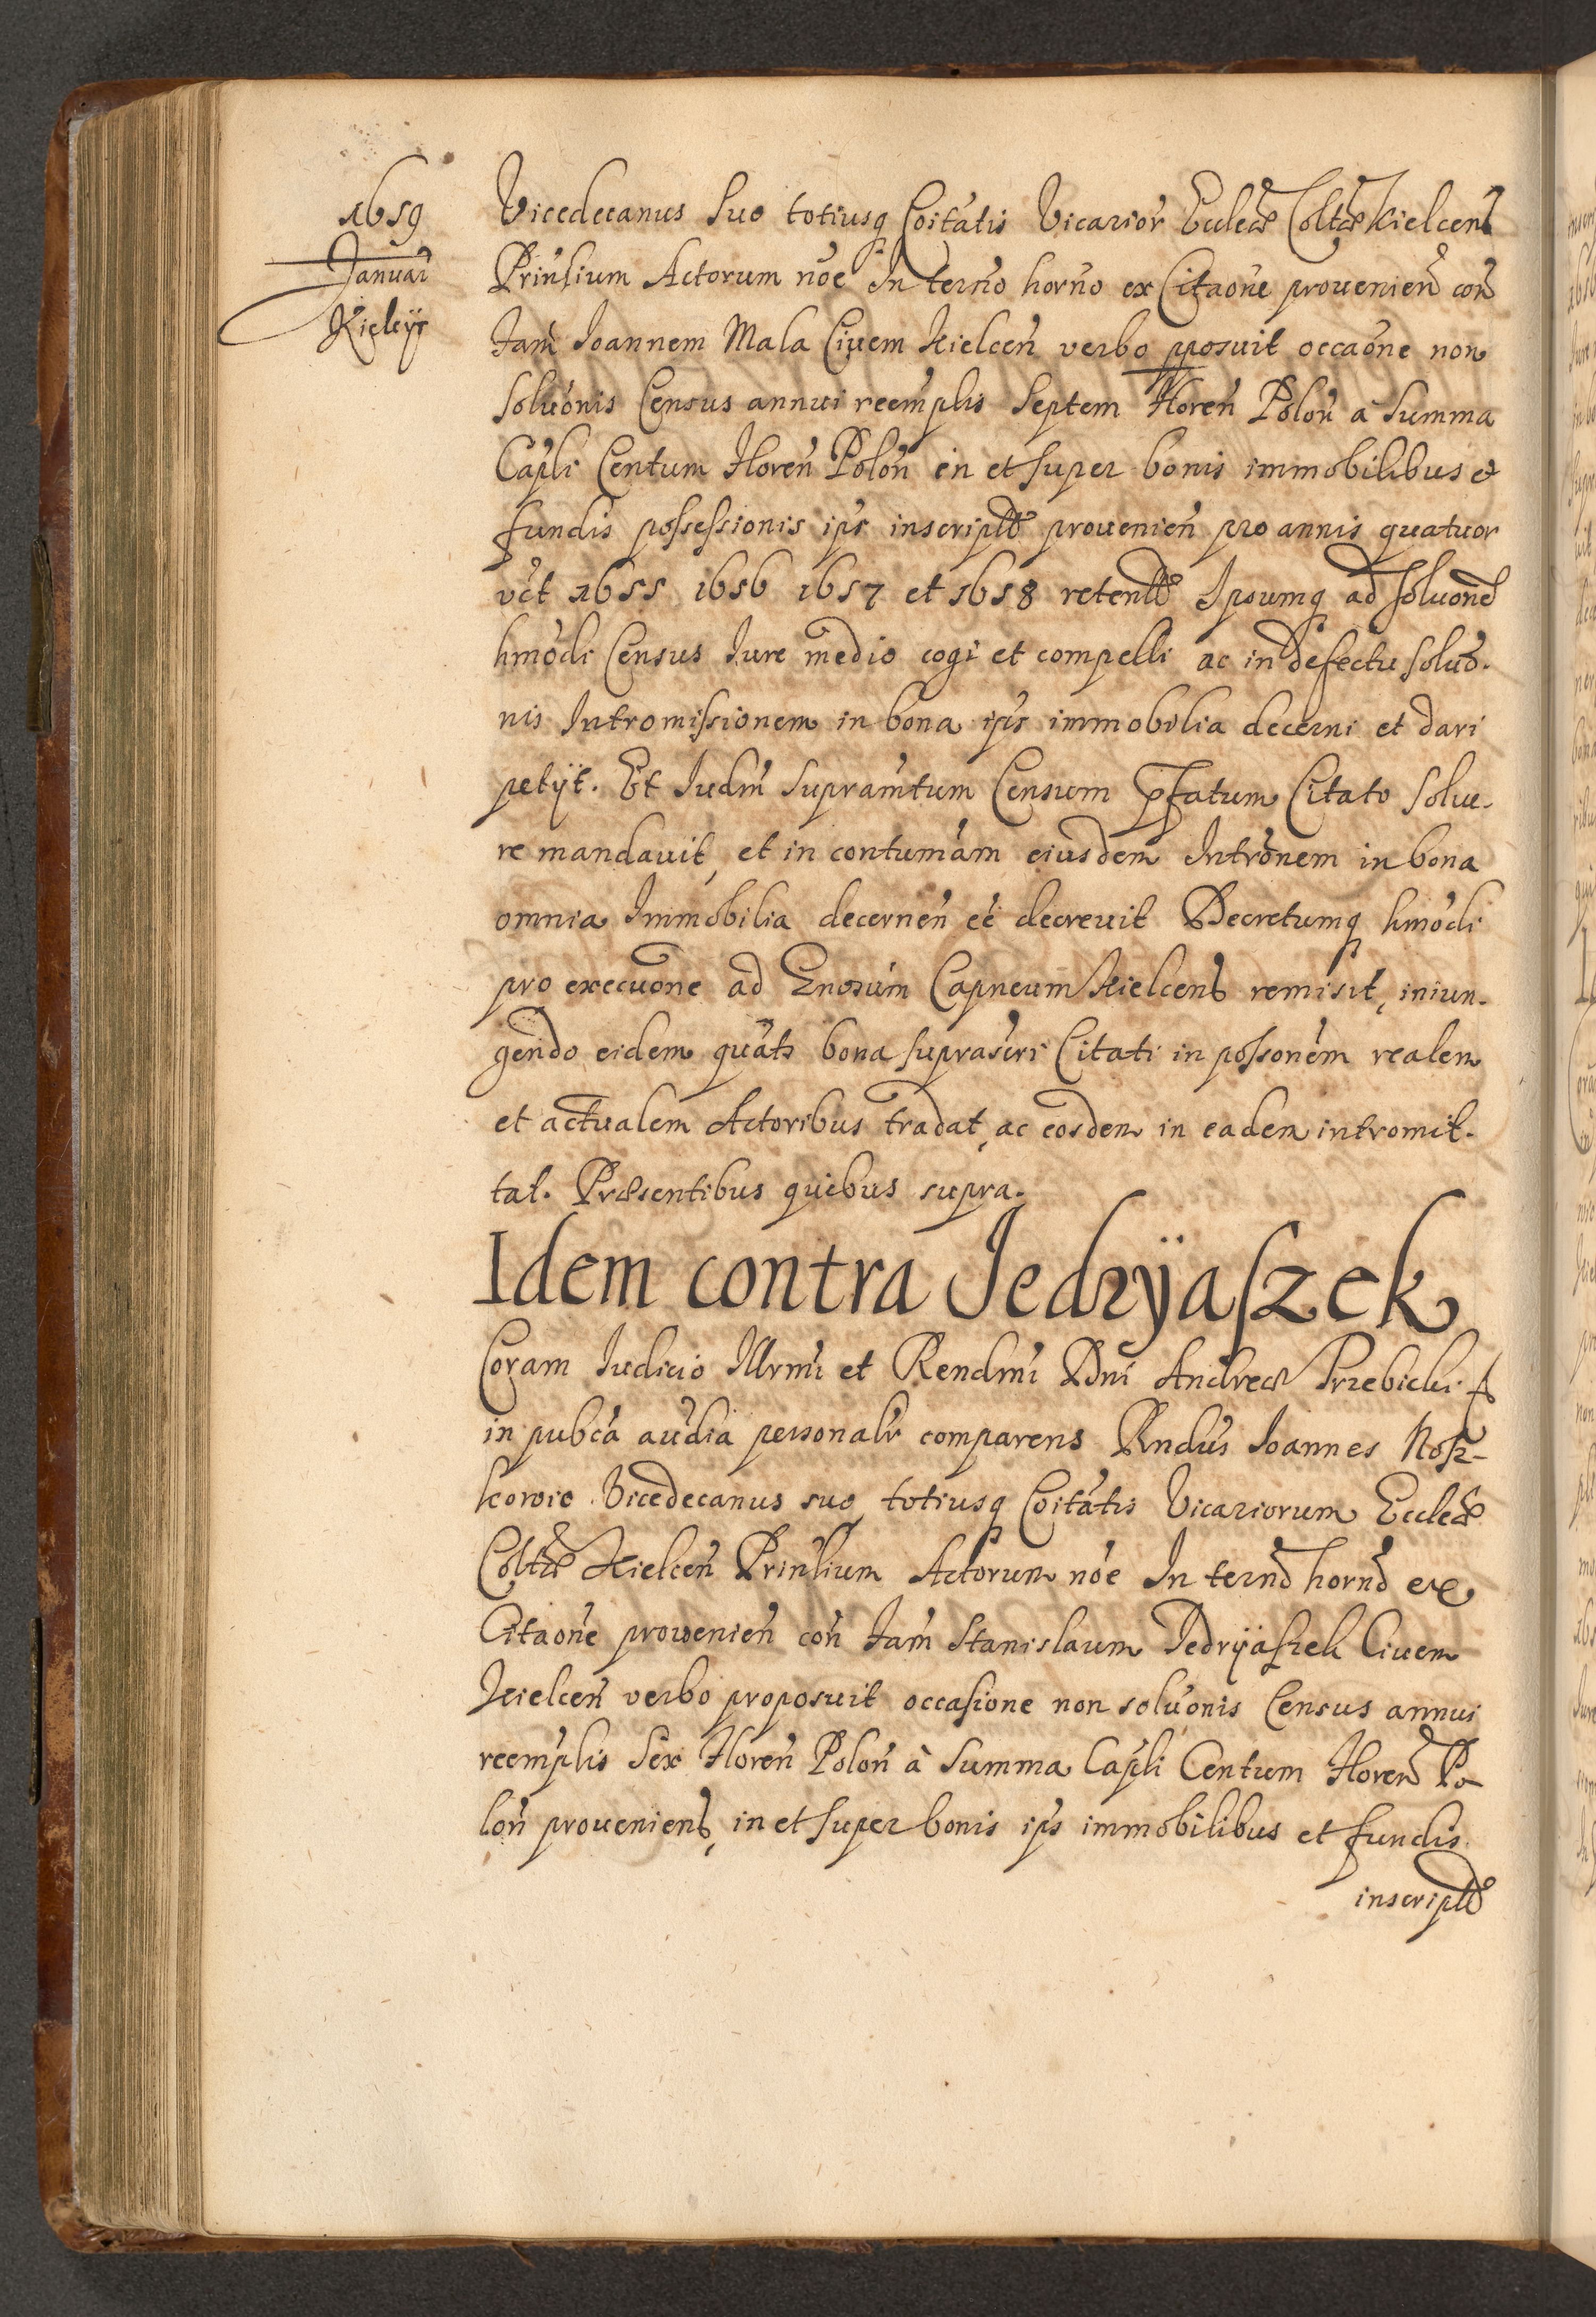 1659
Januar̃
Kielcÿs
Vicedecanus suo totiusq Coitatis Vicarior̃ Eccleæ Coltæ Kielcens̃
Prinlium Actorum noe̾ In term̃o horno ex Citaone̾ prouenien̾ con̾
Fam̃ Ioannem Mala Ciuem Kielcen̾ verbo pposuit occaone̾ non
soluonis̾ Census annui reemplis̾ septem Floren̾ Polon̾ à summa
Capli̾ Centum Floren̾ Polon̾ in et super bonis immobilibus et
fundis possessionis ips̾ inscriptæ prouenien̾ pro annis quatuor
vct̾ 1655 1656 1657 et 1658 retentæ Ipsumq ad soluone̾
hmodi̾ Census Iure medio cogi et compelli ac in defectu soluo̾-
nis Intromissionem in bona ips̾ immobilia decerni et dari
petÿt. Et Iudm̾ supramtum̾ Censum pfatum Citato solue-
re mandauit, et in contumam̾ eiusdem Intronem̾ in bona
omnia Immobilia decernen̾ ee̾ decreuit Decretumq hmodi̾
pro execuone̾ ad Gnosum̾ Capneum̾ Kielcens̾ remisit, iniun-
gendo eidem quats̾ bona suprascri̾ Citati in possonem̾ realem
et actualem Actoribus tradat, ac eosdem in eadem intromit-
tat. Præsentibus quibus supra.
Idem contra Jedrÿaszek
Coram Iudicio Illrmi̾ et Rendmi̾ Dni̾ Andreæ Trzebicki
in pubca̾ audia̾ personalr̾ comparens Rndus̾ Ioannes Nosz-
kowic Vicedecanus suo totiusq Coitatis̾ Vicariorum Eccleæ
Coltæ Kielcen̾ Prinlium̾ Actorum noe̾ In termo̾ horno̾ ex
Citaone̾ prouenien̾ con̾ Fam̾ Stanislaum Jedrÿaszek Ciuem
Kielcen̾ verbo proposuit occasione non soluonis̾ Census annui
reemplis̾ sex Floren̾ Polon̾ à summa Capli̾ Centum Floren̾ Po-
lon̾ proueniens̾, in et super bonis ips̾ immobilibus et fundis
inscriptæ